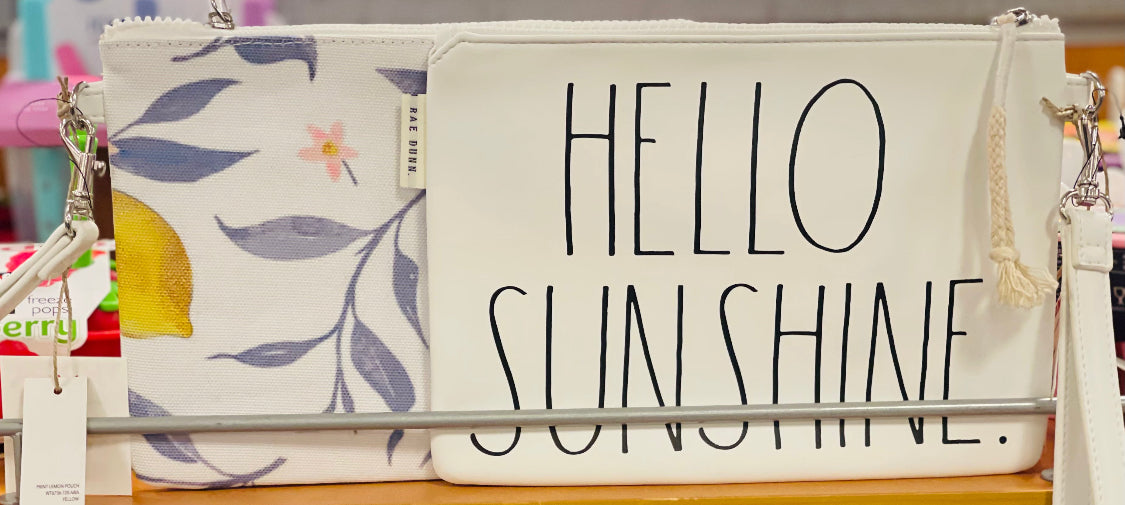 RAE DUNN.
HELLO
SUNSHINE.
freeze
pops
erry
PRINT LEMON POUCH
YELLOW